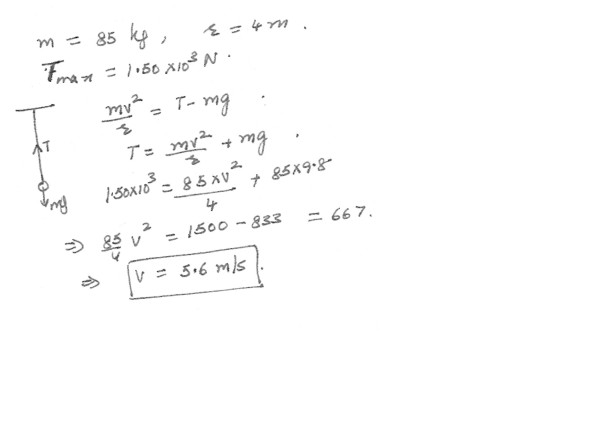 m = 85 kg, r = 4 m.
Tmax = 1.50 x10³ N.
mv²/r = T - mg
T = mv²/r + mg.
T
mg
1.50x10³ = 85 x v²/4 + 85x9.8
⇒ 85/4 v² = 1500 - 833 = 667.
⇒ v = 5.6 m/s.